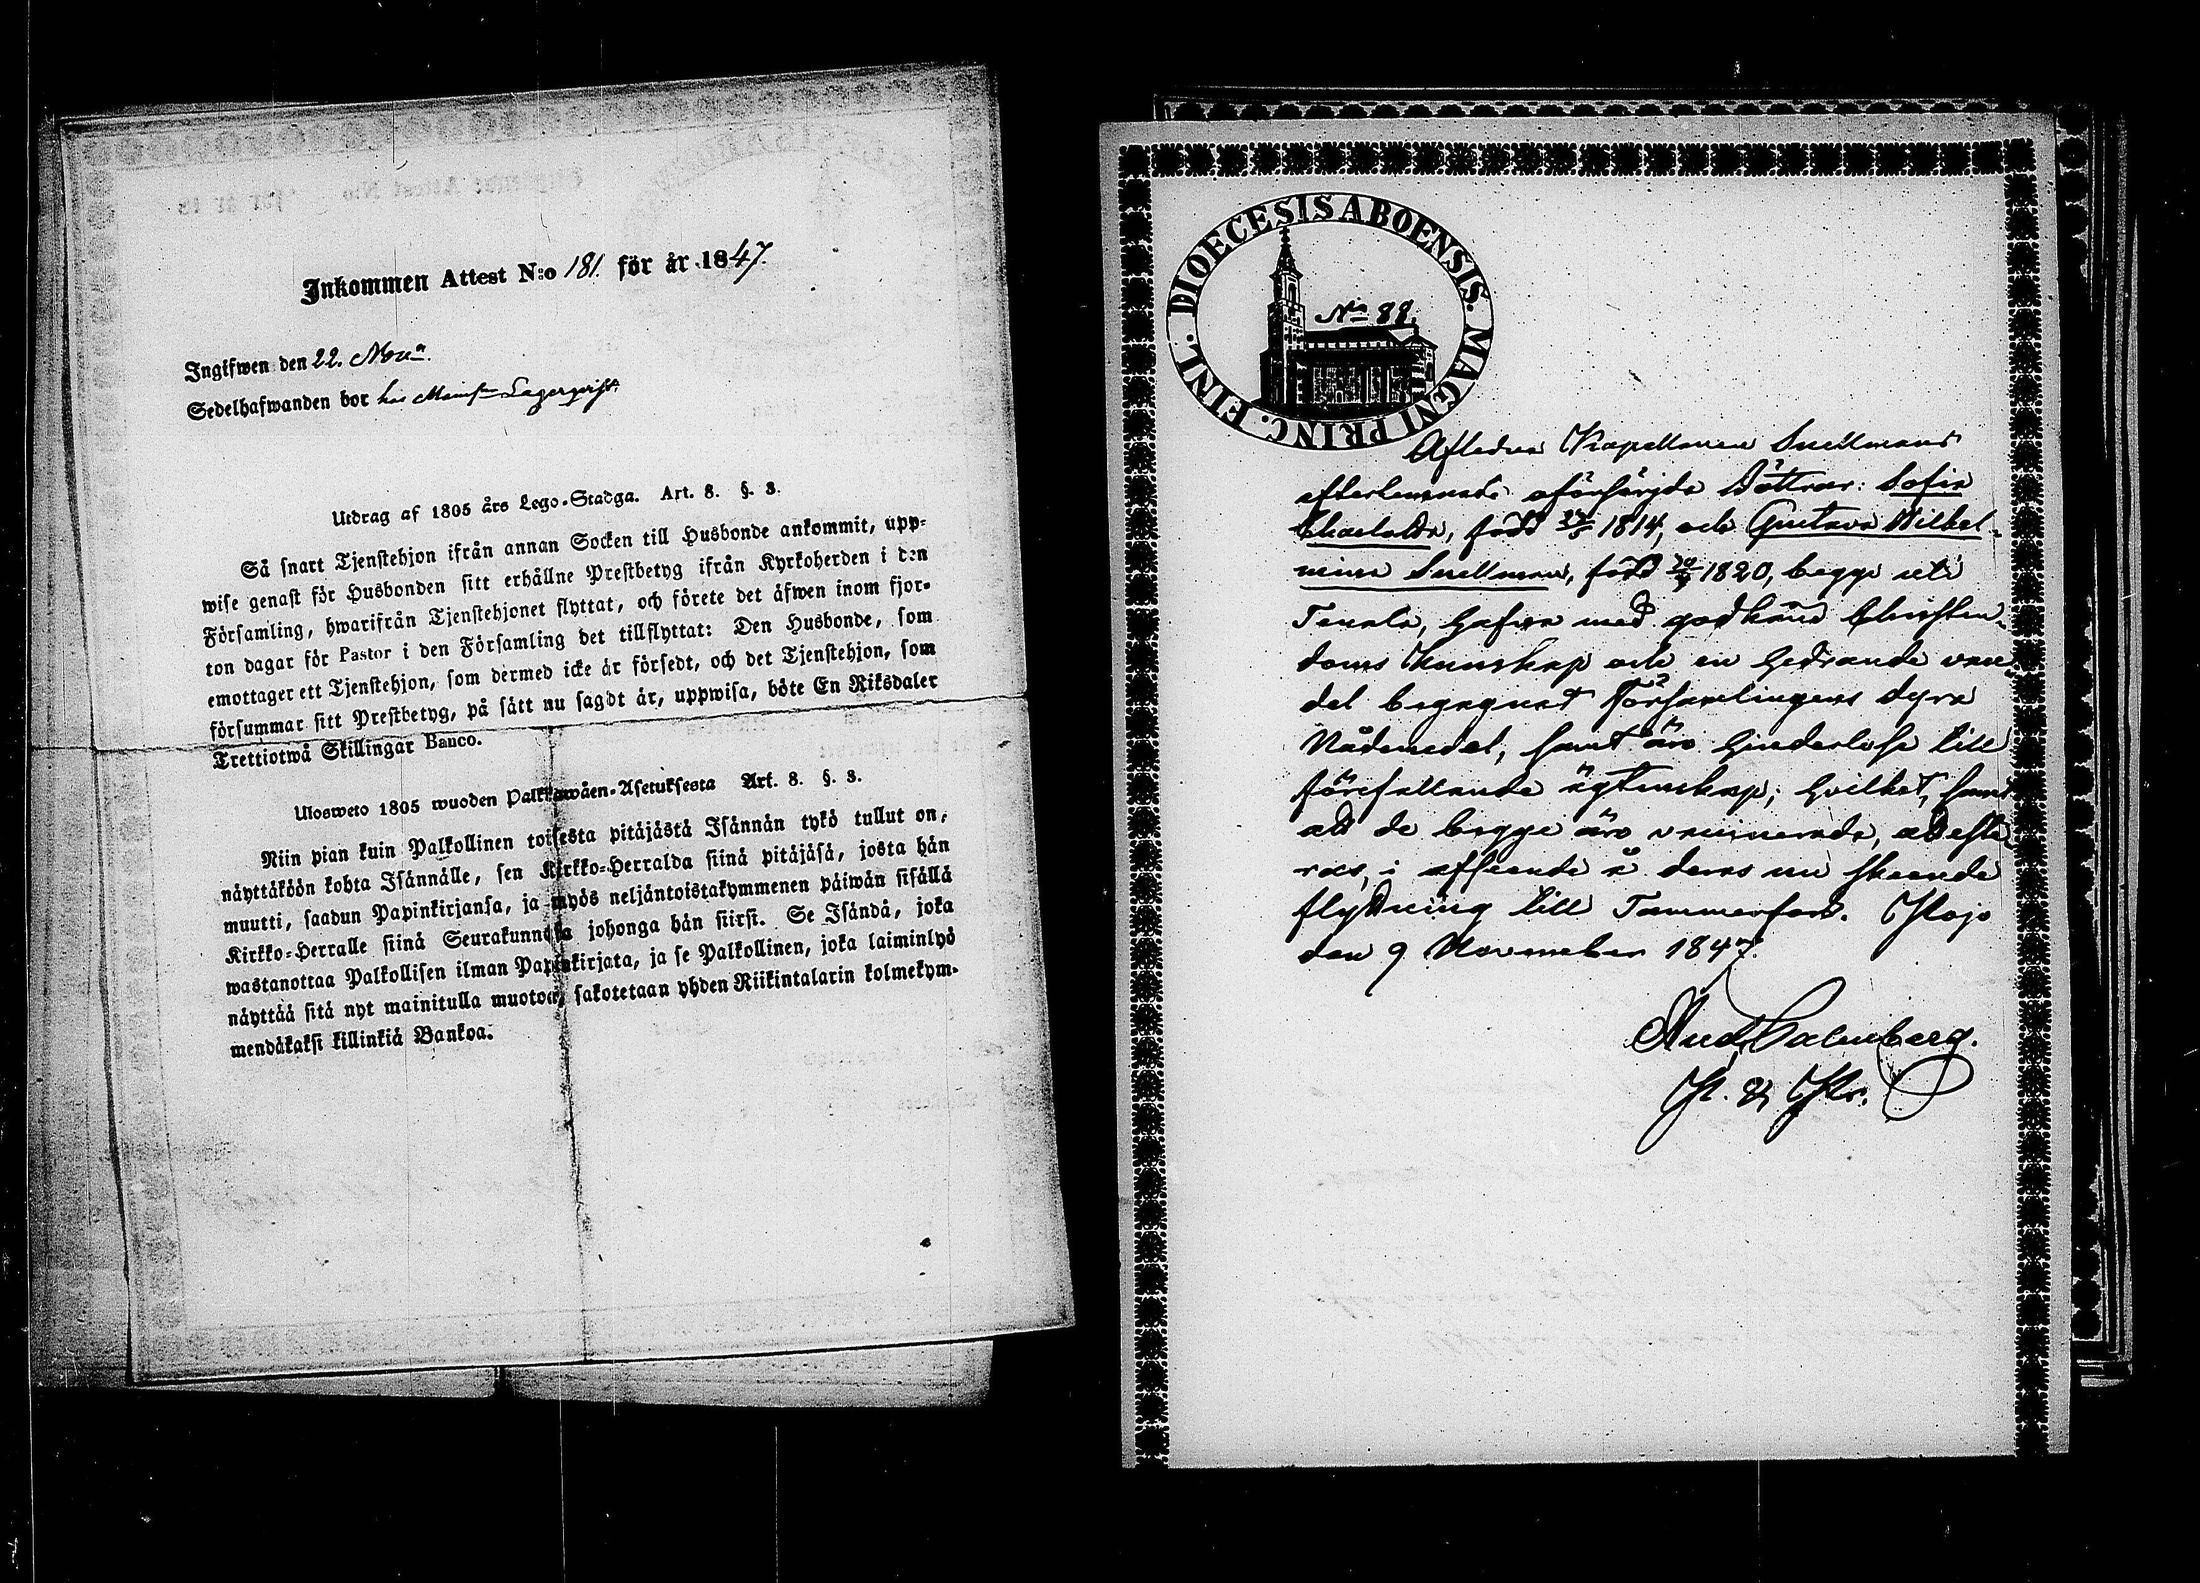 Inkommen Attest N:o 181. för år 1847.
Ingifwen den 22. Nov.
Sedelhafwanden bor hos Lagerqvist
Utdrag af 1805 års Lego-Stadga. Art. 8. §. 3.
Så snart Tjenstehjon ifrån annan Socken till Husbonde ankommit, upp-
wise genast för Husbonden sitt erhållne Prestbetyg ifrån Kyrkoherden i den
Församling, hwarifrån Tjenstehjonet flyttat, och förete det äfwen inom fjor-
ton dagar för Pastor i den Församling det tillflyttat: Den Husbonde, som
emottager ett Tjenstehjon, som dermed icke är försedt, och det Tjenstehjon, som
försummar sitt Prestbetyg, på sätt nu sagdt är, uppwisa, böte En Riksdaler
Trettiotwå Skillingar Banco.
Ulosweto 1805 wuoden Palkkawäen-Asetuksesta Art. 8. §. 3.
Niin pian kuin Palkollinen toisesta pitäjästä Isännän tykö tullut on,
näyttäköön kohta Isännälle, sen Kirkko-Herralda siinä pitäjäsä, josta hän
muutti, saadun Papinkirjansa, ja myös neljäntoistakymmenen päiwän sisällä
Kirkko-Herralle siinä Seurakunnasa johonga hän siirsi. Se Isändä, joka
wastanottaa Palkollisen ilman Papinkirjata, ja se Palkollinen, joka laiminlyö
näyttää sitä nyt mainitulla muotoa, sakotetaan yhden Riikintalarin kolmekym-
mendäkaksi killinkiä Bankoa.
DIOECESIS ABOENSIS. MAGNI PRINC. FINL.
No 88.
Afledne Kapellanen Snellmans
efterlemnade oförsörjda Döttrar: Sofia
född 1814, och Gustava Wilhel-
mina Snellman, född 1820, begge uti
Tenala, hafva med godkänd Christen-
doms Kunskap och en hedrande van-
del begagnat Församlingens dyra
Nådemedel, samt äro hinderlösa till
förefallande ägtenskap; hvilket, samt
att de begge äro vaccinerade, atteste-
ras, i afseende å deras nu skeende
flyttning till Tammerfors. Klojo
den 9 November 1847.